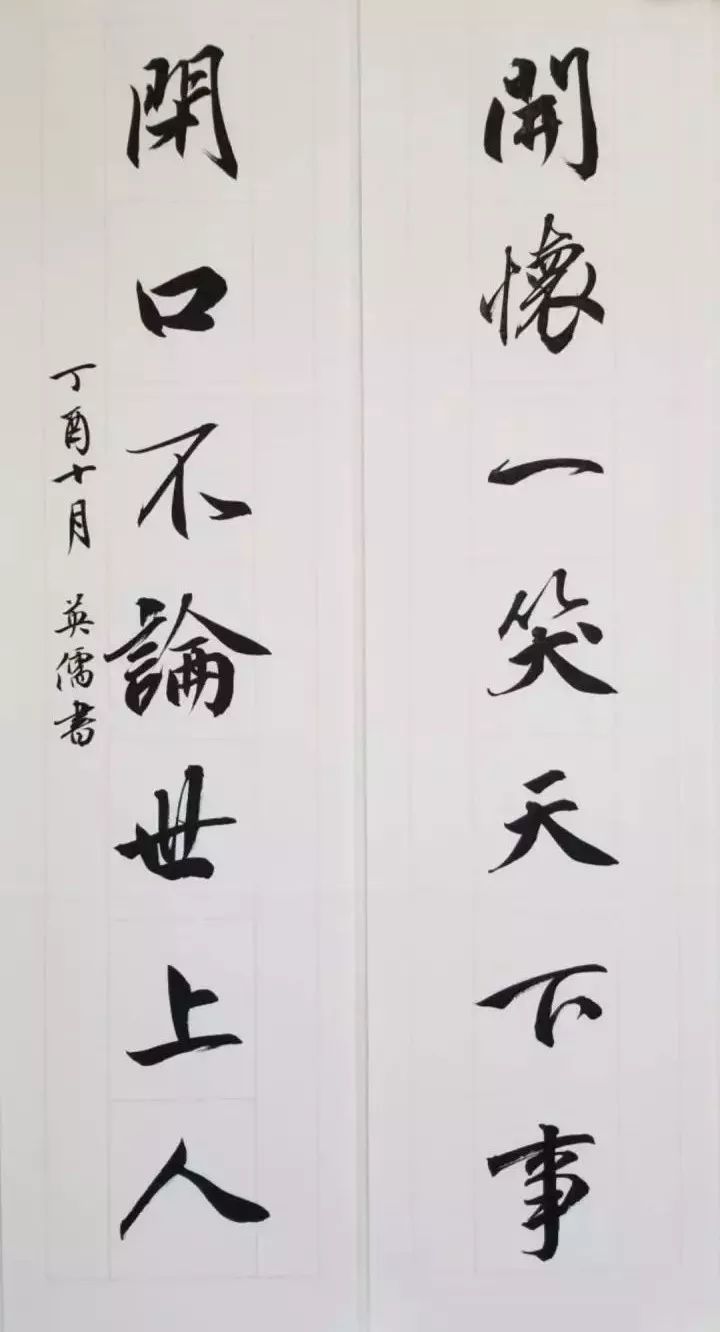 開懷一笑天下事
閉口不論世上人
丁酉十月 英儒书